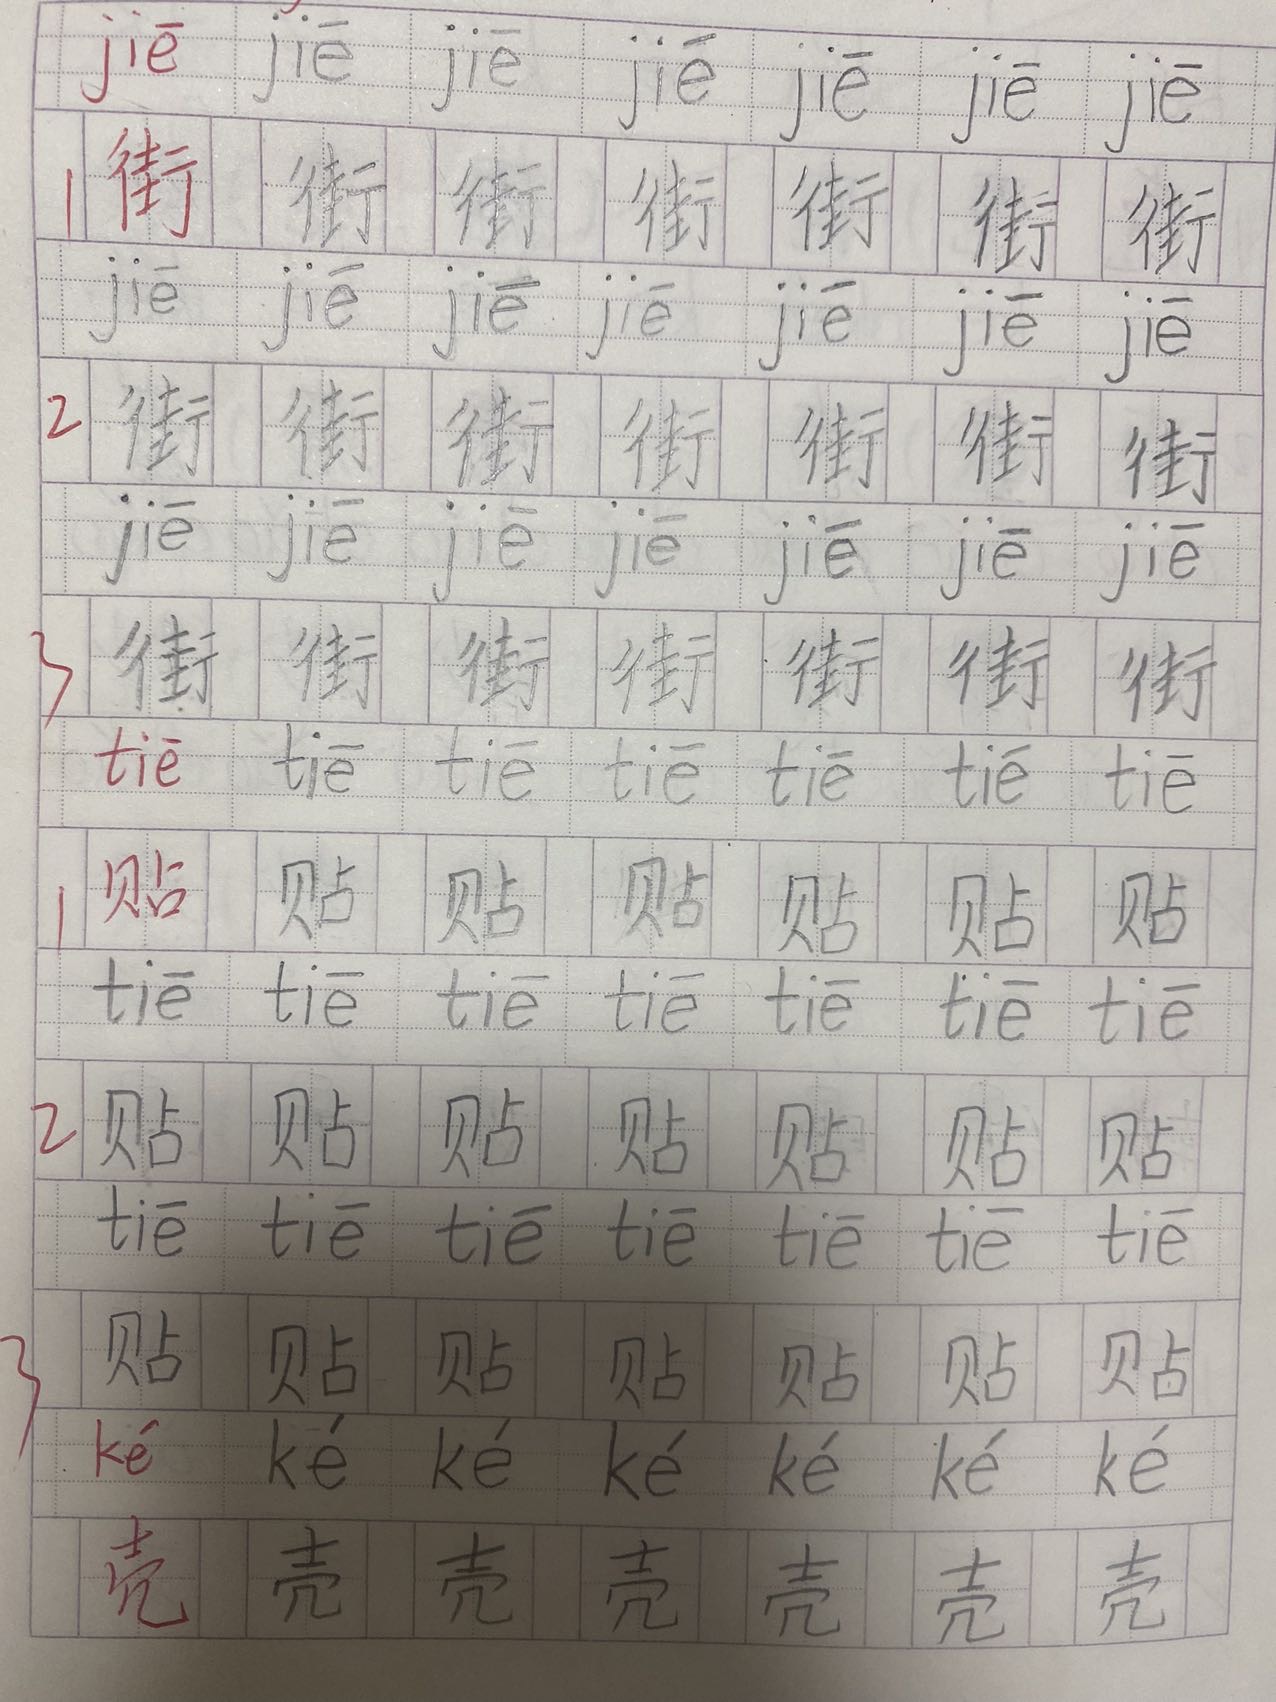 jiē jiē jiē jiē jiē jiē jiē
1 街 街 街 街 街 街 街
jiē jiē jiē jiē jiē jiē jiē
2 街 街 街 街 街 街 街
jiē jiē jiē jiē jiē jiē jiē
3 街 街 街 街 街 街 街
tiē tiē tiē tiē tiē tiē tiē
1 贴 贴 贴 贴 贴 贴 贴
tiē tiē tiē tiē tiē tiē tiē
2 贴 贴 贴 贴 贴 贴 贴
tiē tiē tiē tiē tiē tiē tiē
3 贴 贴 贴 贴 贴 贴 贴
ké ké ké ké ké ké ké
壳 壳 壳 壳 壳 壳 壳